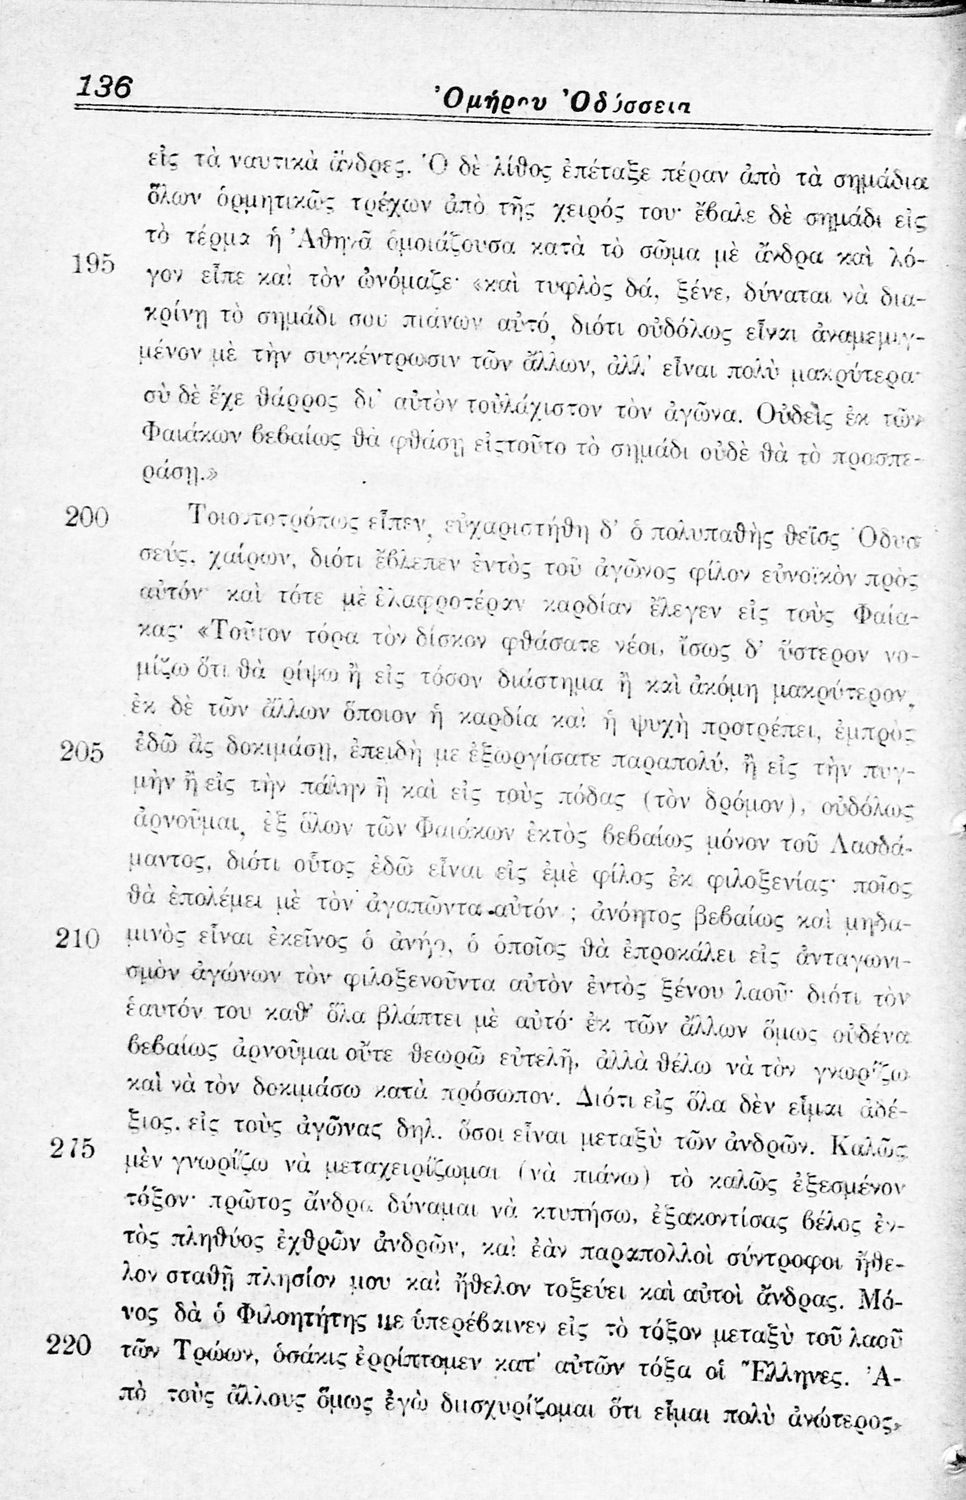 136
Ὁμήρου Ὀδύσσεια
εἰς τὰ ναυτικὰ ἄνδρες. Ὁ δὲ λίθος ἐπέταξε πέραν ἀπὸ τὰ σημάδια
ὅλων ὁρμητικῶς τρέχων ἀπὸ τῆς χειρός του· ἔβαλε δὲ σημάδι εἰς
τὸ τέρμα ἡ Ἀθηνᾶ ὁμοιάζουσα κατὰ τὸ σῶμα μὲ ἄνδρα καὶ λό-
195 γον εἶπε καὶ τὸν ὠνόμαζε· «καὶ τυφλὸς δά, ξένε, δύναται νὰ δια-
κρίνῃ τὸ σημάδι σου πιάνων αὐτό, διότι οὐδόλως εἶναι ἀναμεμιγ-
μένον μὲ τὴν συγκέντρωσιν τῶν ἄλλων, ἀλλ' εἶναι πολὺ μακρύτερα·
σὺ δὲ ἔχε θάρρος δι' αὐτὸν τοὐλάχιστον τὸν ἀγῶνα. Οὐδεὶς ἐκ τῶν
Φαιάκων βεβαίως θὰ φθάσῃ εἰςτοῦτο τὸ σημάδι οὐδὲ θὰ τὸ προσπε-
ράσῃ.»
200 Τοιουτοτρόπως εἶπεν, εὐχαριστήθη δ' ὁ πολυπαθὴς θεῖος Ὀδυσ
σεύς, χαίρων, διότι ἔβλεπεν ἐντὸς τοῦ ἀγῶνος φίλον εὐνοϊκὸν πρὸς
αὐτόν· καὶ τότε μὲ ἐλαφροτέραν καρδίαν ἔλεγεν εἰς τοὺς Φαία-
κας· «Τοῦτον τόρα τὸν δίσκον φθάσατε νέοι, ἴσως δ' ὕστερον νο-
μίζω ὅτι θὰ ρίψω ἢ εἰς τόσον διάστημα ἢ καὶ ἀκόμη μακρύτερον,
ἐκ δὲ τῶν ἄλλων ὅποιον ἡ καρδία καὶ ἡ ψυχὴ προτρέπει, ἐμπρὸς
205 ἐδῶ ἂς δοκιμάσῃ, ἐπειδὴ με ἐξωργίσατε παραπολύ, ἢ εἰς τὴν πυγ-
μὴν ἢ εἰς τὴν πάλην ἢ καὶ εἰς τοὺς πόδας (τὸν δρόμον), οὐδόλως
ἀρνοῦμαι, ἐξ ὅλων τῶν Φαιάκων ἐκτὸς βεβαίως μόνον τοῦ Λαοδά-
μαντος, διότι οὗτος ἐδῶ εἶναι εἰς ἐμὲ φίλος ἐκ φιλοξενίας· ποῖος
θὰ ἐπολέμει μὲ τὸν ἀγαπῶντα αὐτόν ; ἀνόητος βεβαίως καὶ μηδα-
210 μινὸς εἶναι ἐκεῖνος ὁ ἀνήρ, ὁ ὁποῖος θὰ ἐπροκάλει εἰς ἀνταγωνι-
σμὸν ἀγώνων τὸν φιλοξενοῦντα αὐτὸν ἐντὸς ξένου λαοῦ· διότι τὸν
ἑαυτόν του καθ' ὅλα βλάπτει μὲ αὐτό· ἐκ τῶν ἄλλων ὅμως οὐδένα
βεβαίως ἀρνοῦμαι οὔτε θεωρῶ εὐτελῆ, ἀλλὰ θέλω νὰ τὸν γνωρίζω
καὶ νὰ τὸν δοκιμάσω κατὰ πρόσωπον. Διότι εἰς ὅλα δὲν εἶμαι ἀδέ-
ξιος, εἰς τοὺς ἀγῶνας δηλ. ὅσοι εἶναι μεταξὺ τῶν ἀνδρῶν. Καλῶς
215 μὲν γνωρίζω νὰ μεταχειρίζωμαι (νὰ πιάνω) τὸ καλῶς ἐξεσμένον
τόξον· πρῶτος ἄνδρα δύναμαι νὰ κτυπήσω, ἐξακοντίσας βέλος ἐν-
τὸς πληθύος ἐχθρῶν ἀνδρῶν, καὶ ἐὰν παραπολλοὶ σύντροφοι ἤθε-
λον σταθῇ πλησίον μου καὶ ἤθελον τοξεύει καὶ αὐτοὶ ἄνδρας. Μό-
νος δὰ ὁ Φιλοητήτης με ὑπερέβαινεν εἰς τὸ τόξον μεταξὺ τοῦ λαοῦ
220 τῶν Τρώων, ὁσάκις ἐρρίπτομεν κατ' αὐτῶν τόξα οἱ Ἕλληνες. Ἀ-
πὸ τοὺς ἄλλους ὅμως ἐγὼ διισχυρίζομαι ὅτι εἶμαι πολὺ ἀνώτερος,